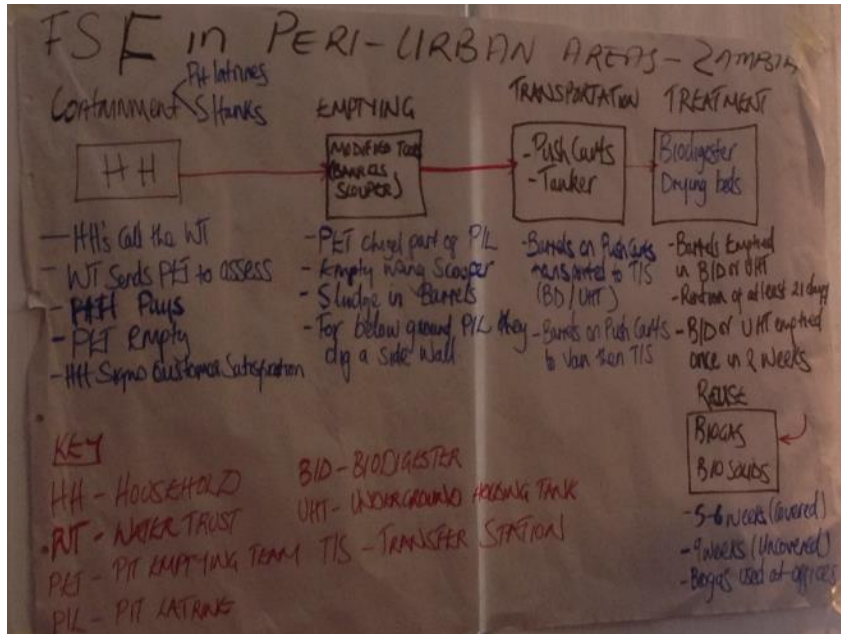 FSE in PERI-URBAN AREAS - ZAMBIA
Containment
Pit latrines
S/tanks
HH
- HH's Call the WT
- WT Sends PET to assess
- HH Pays
- PET Empty
- HH Signs Customer Satisfaction
EMPTYING
MODIFIED TOOLS
(BARRELS
SCOUPER)
- PET chisel part of P/L
- Empty using Scouper
- Sludge in Barrels
- For below ground P/L they
dig a side wall
TRANSPORTATION
- Push Carts
- Tanker
- Barrels on Push Carts
transported to T/S
(BD/UHT)
- Barrels on Push Carts
to Van then T/S
TREATMENT
Biodigester
Drying beds
- Barrels Emptied
in B/D or UHT
- of at least 21 days
- B/D or UHT emptied
once in 2 weeks
REUSE
BIOGAS
BIOSOLIDS
- 5-6 weeks (Covered)
- 9 weeks (Uncovered)
- Biogas used at offices
KEY
HH - HOUSEHOLD
WT - WATER TRUST
PET - PIT EMPTYING TEAM
P/L - PIT LATRINE
B/D - BIODIGESTER
UHT - UNDERGROUND HOLDING TANK
T/S - TRANSFER STATION